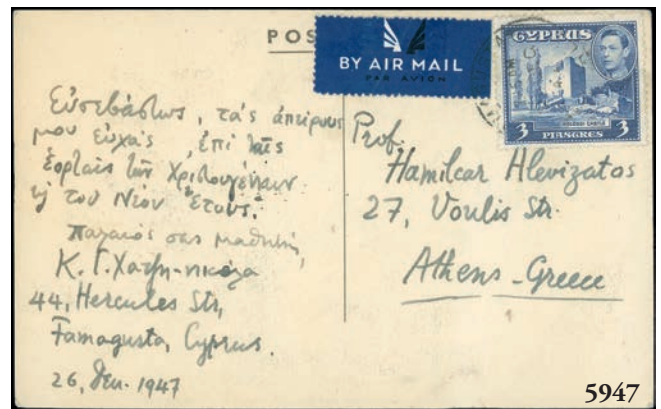 POS
BY AIR MAIL
PAR AVION
CYPRUS
KOLOSSI CASTLE
3 PIASTRES 3
Εὐσεβάστως, τάς ἀπείρους
μου εὐχάς, ἐπί ταῖς
ἑορταῖς τῶν Χριστουγέννων
ϗ τοῦ Νέου Ἔτους.
παλαιός σας μαθητής,
Κ. Γ. Χατζη-νικόλα
44, Hercules Str,
Famagusta, Cyprus.
26, Δεκ. 1947
Prof.
Hamilcar Alevizatos
27, Voulis Str.
Athens - Greece
5947